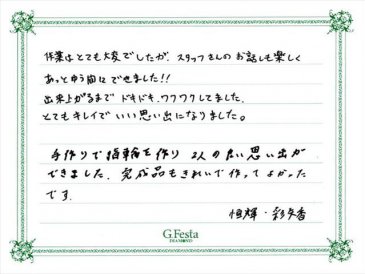 作業はとても大変でしたが、スタッフさんのお話しも楽しく
あっとゆう間にできました!!
出来上がるまで ドキドキ、ワクワクしてました。
とてもキレイでいい思い出になりました。
手作りで指輪を作り 2人の良い思い出が
できました。完成品もきれいで作ってよかった
です。
恒輝・彩矢香
G.Festa
DIAMOND